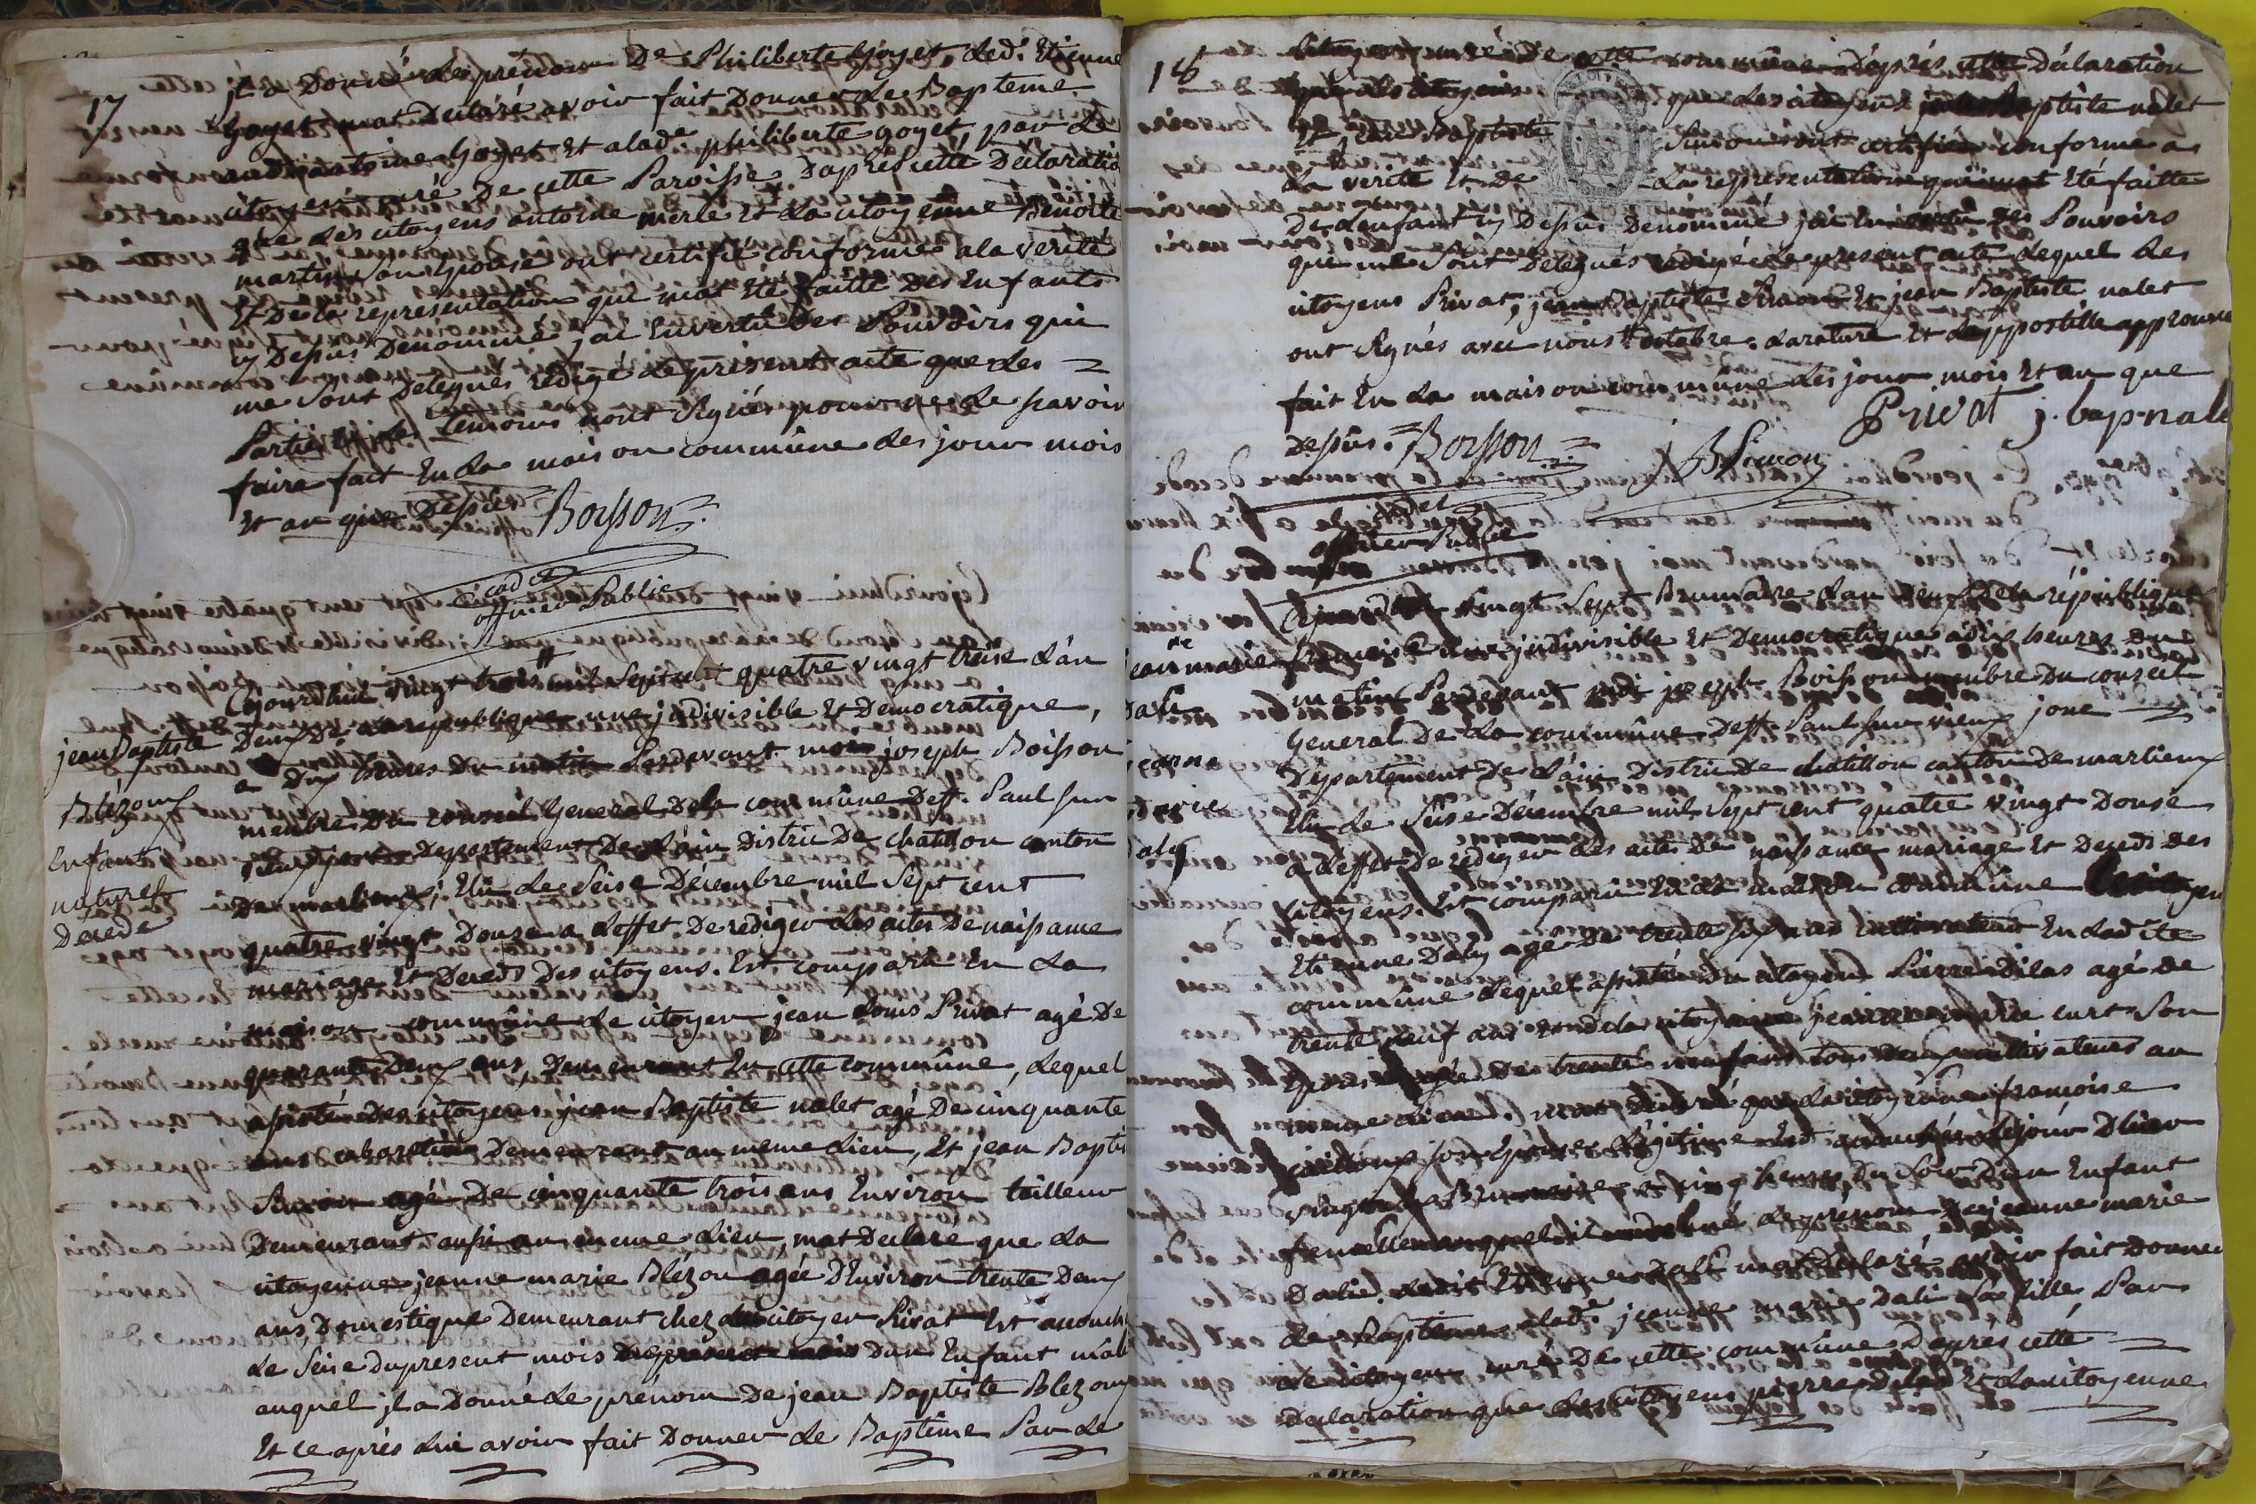 17
jl a Donné Les prénom De Philiberte Goyet, Led. Etienne
Goyet mat Déclaré avoir fait Donner Le Bapteme
antoine Goyet Et alade philiberte goyet, par Le
citoyen curé De cette Paroisse D'apres cette Declaratio
que Les citoyens antoine merle Et La citoyenne Benoite
martin son Epouse ont certifié conforme ala verité
Et De la representation qui mat Eté faitte Des Enfants
cy Dessus Dénommé j'ai Envertu Des Pouvoirs qui
me sont Delegués rédigé Le present acte que Les
Parties Et Temoins nont signés pour ne Le scavoir
faire fait En La maison commûne Les jour mois
Et an que Dessus Boisson
officier Public
jean Baptiste
Blézon
Enfant
naturel
Décédé
Cejourdhui vingt trois mil Sept cent quatre vingt treise L'an
Deux De La republique une jndivisible Et Democratique,
a Dix heures Du matin Pardevant moi joseph Boisson
membre Du conseil General De la commûne De St. Paul sur
Departement De L'ain District De chatillon canton
De marlieux; Elû Le Seise Décembre mil Sept cent
quatre vingt Douse a Leffet De rediger Les actes De naissance
mariage Et Deceds Des citoyens. Est comparu En La
maison commûne Le citoyen jean Louis Privat agé De
quarante Deux ans, Demeurant En cette commûne, Lequel
assisté Des citoyens jean Baptiste nalet agé De cinquante
ans cabaretier Demeurant au meme Lieu, Et jean Bapti
Simon agé De cinquante trois ans Environ tailleur
Demeurant aussi au meme Lieu mat Declare que La
citoyenne jeanne marie Blézon agée D'Environ trente Deux
ans, Domestique Demeurant chez Le citoyen Privat Est accouch
Le Seise Du present mois Dun Enfant mâl
auquel jl a Donné Le prénom De jean Baptiste Blézon
Et ce après Lui avoir fait Donner Le Baptême Par Le
18
citoyen curé De cette commûne D'après cette Déclaration
que Les citoyens jean Baptiste nalet
Et jean Baptiste Simon ont certifié conforme a
La verité Et De La representation qui mat Eté faitte
De Lenfant cy Dessus Dénommé j'ai En vertu Des Pouvoirs
qui me sont Delegués rédigé Le present acte Lequel Les
citoyens Privat, jean Baptiste Simon Et jean Baptiste nalet
ont signés avec nous octobre. La rature Et L'appostille approuvé
fait En La maison commûne Les jour mois Et an que
Dessus. Boisson JB Simon Privat j. bap. nale
officier Public
jeanne marie
Dali
Cejourdhui vingt Sept Brumaire L'an Deux De la république
françoise une jndivisible Et Democratique a Dix heures Du
matin Pardevant moi joseph Boisson membre Du conseil
General De La commûne De St. Paul sur vieux jonc
Département De L'ain District De chatillon canton De marlieux
Elû Le Seise Décembre mil Sept cent quatre vingt Douse
a Leffet De rediger Les actes De naissance mariage Et Deceds Des
citoyens. Est comparu En La maison commûne Le citoyen
Etienne Daly agé De trente ans cultivateur En Ladite
commûne Lequel assisté Du citoyen Pierre Dilas agé De
trente neuf ans Et De La citoyenne jeanne marie curt Son
Epouse agée De trente neuf ans tous Deux cultivateurs au
meme Lieu mat Déclaré que La citoyenne françoise
son Epouse Légitime Est accouchée Le jour D'hier
vingt Six Brumaire a cinq heures Du Soir D'un Enfant
femelle auquel jl a Donné Le prénom De jeanne marie
Dalie. Ledit Etienne Dali mat Déclaré avoir fait Donner
Le Baptême alade jeanne marie Dali Sa fille Par
Le citoyen curé De cette commûne D'apres cette
Declaration que Les citoyens pierre Dilas Et La citoyenne